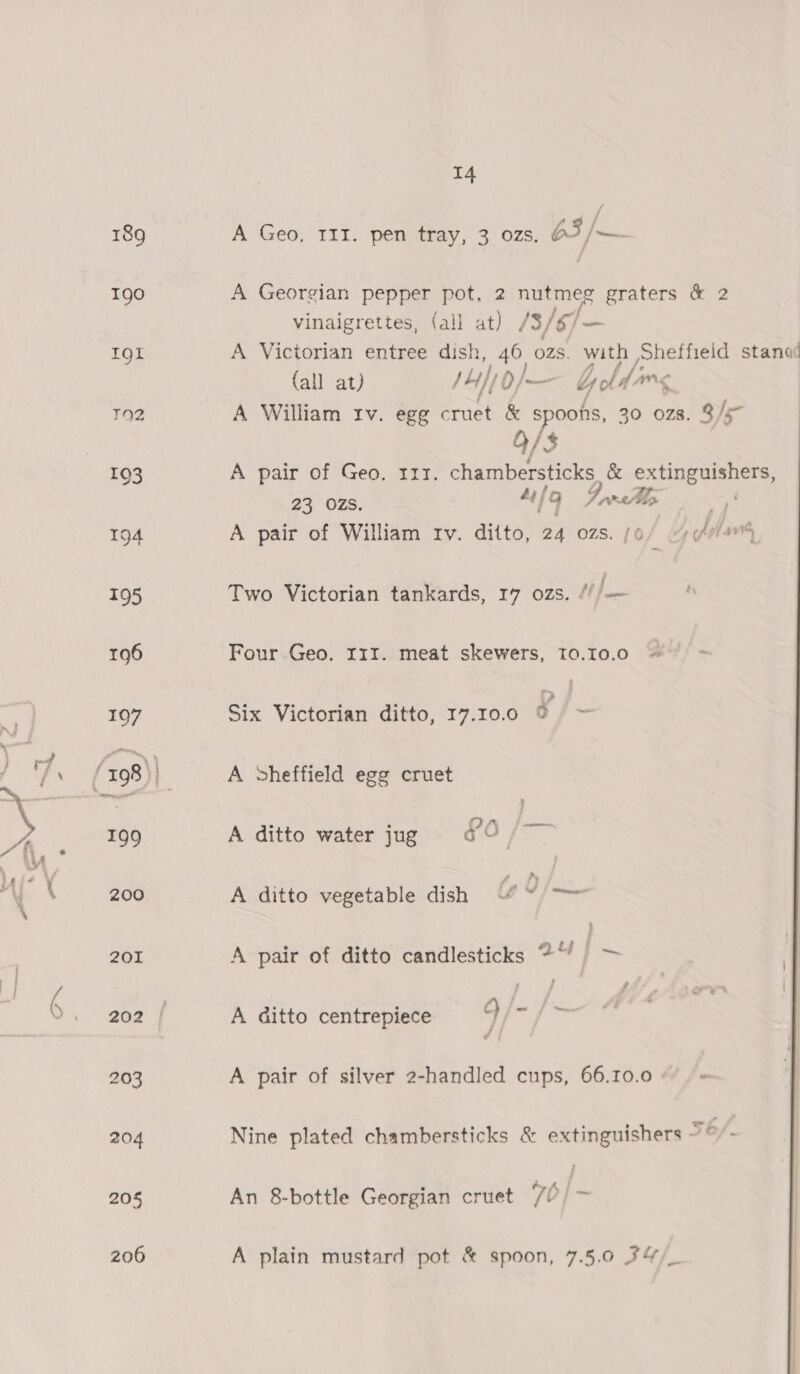 14
189 A Geo. III. pen tray, 3 ozs. 63/—
190 A Georgian pepper pot, 2 nutmeg graters & 2
vinaigrettes, (all at) 13/6/—
191 A Victorian entree dish, 46 ozs. with Sheffield stand
(all at) 14/10/— Goldmg
192 A William IV. egg cruet & spoons, 30 ozs. 3/5
9/3
193 A pair of Geo. III. chambersticks & extinguishers,
23 ozs.
194 A pair of William IV. ditto, 24 ozs. 10/
195 Two Victorian tankards, 17 ozs.
196 Four Geo. III. meat skewers, 10.10.0
197 Six Victorian ditto, 17.10.0
198 A Sheffield egg cruet
199 A ditto water jug 80/—
200 A ditto vegetable dish
201 A pair of ditto candlesticks 24/—
6. 202 A ditto centrepiece 9/-/—
203 A pair of silver 2-handled cups, 66.10.0
204 Nine plated chambersticks & extinguishers
205 An 8-bottle Georgian cruet 70/—
206 A plain mustard pot & spoon, 7.5.0 34/_